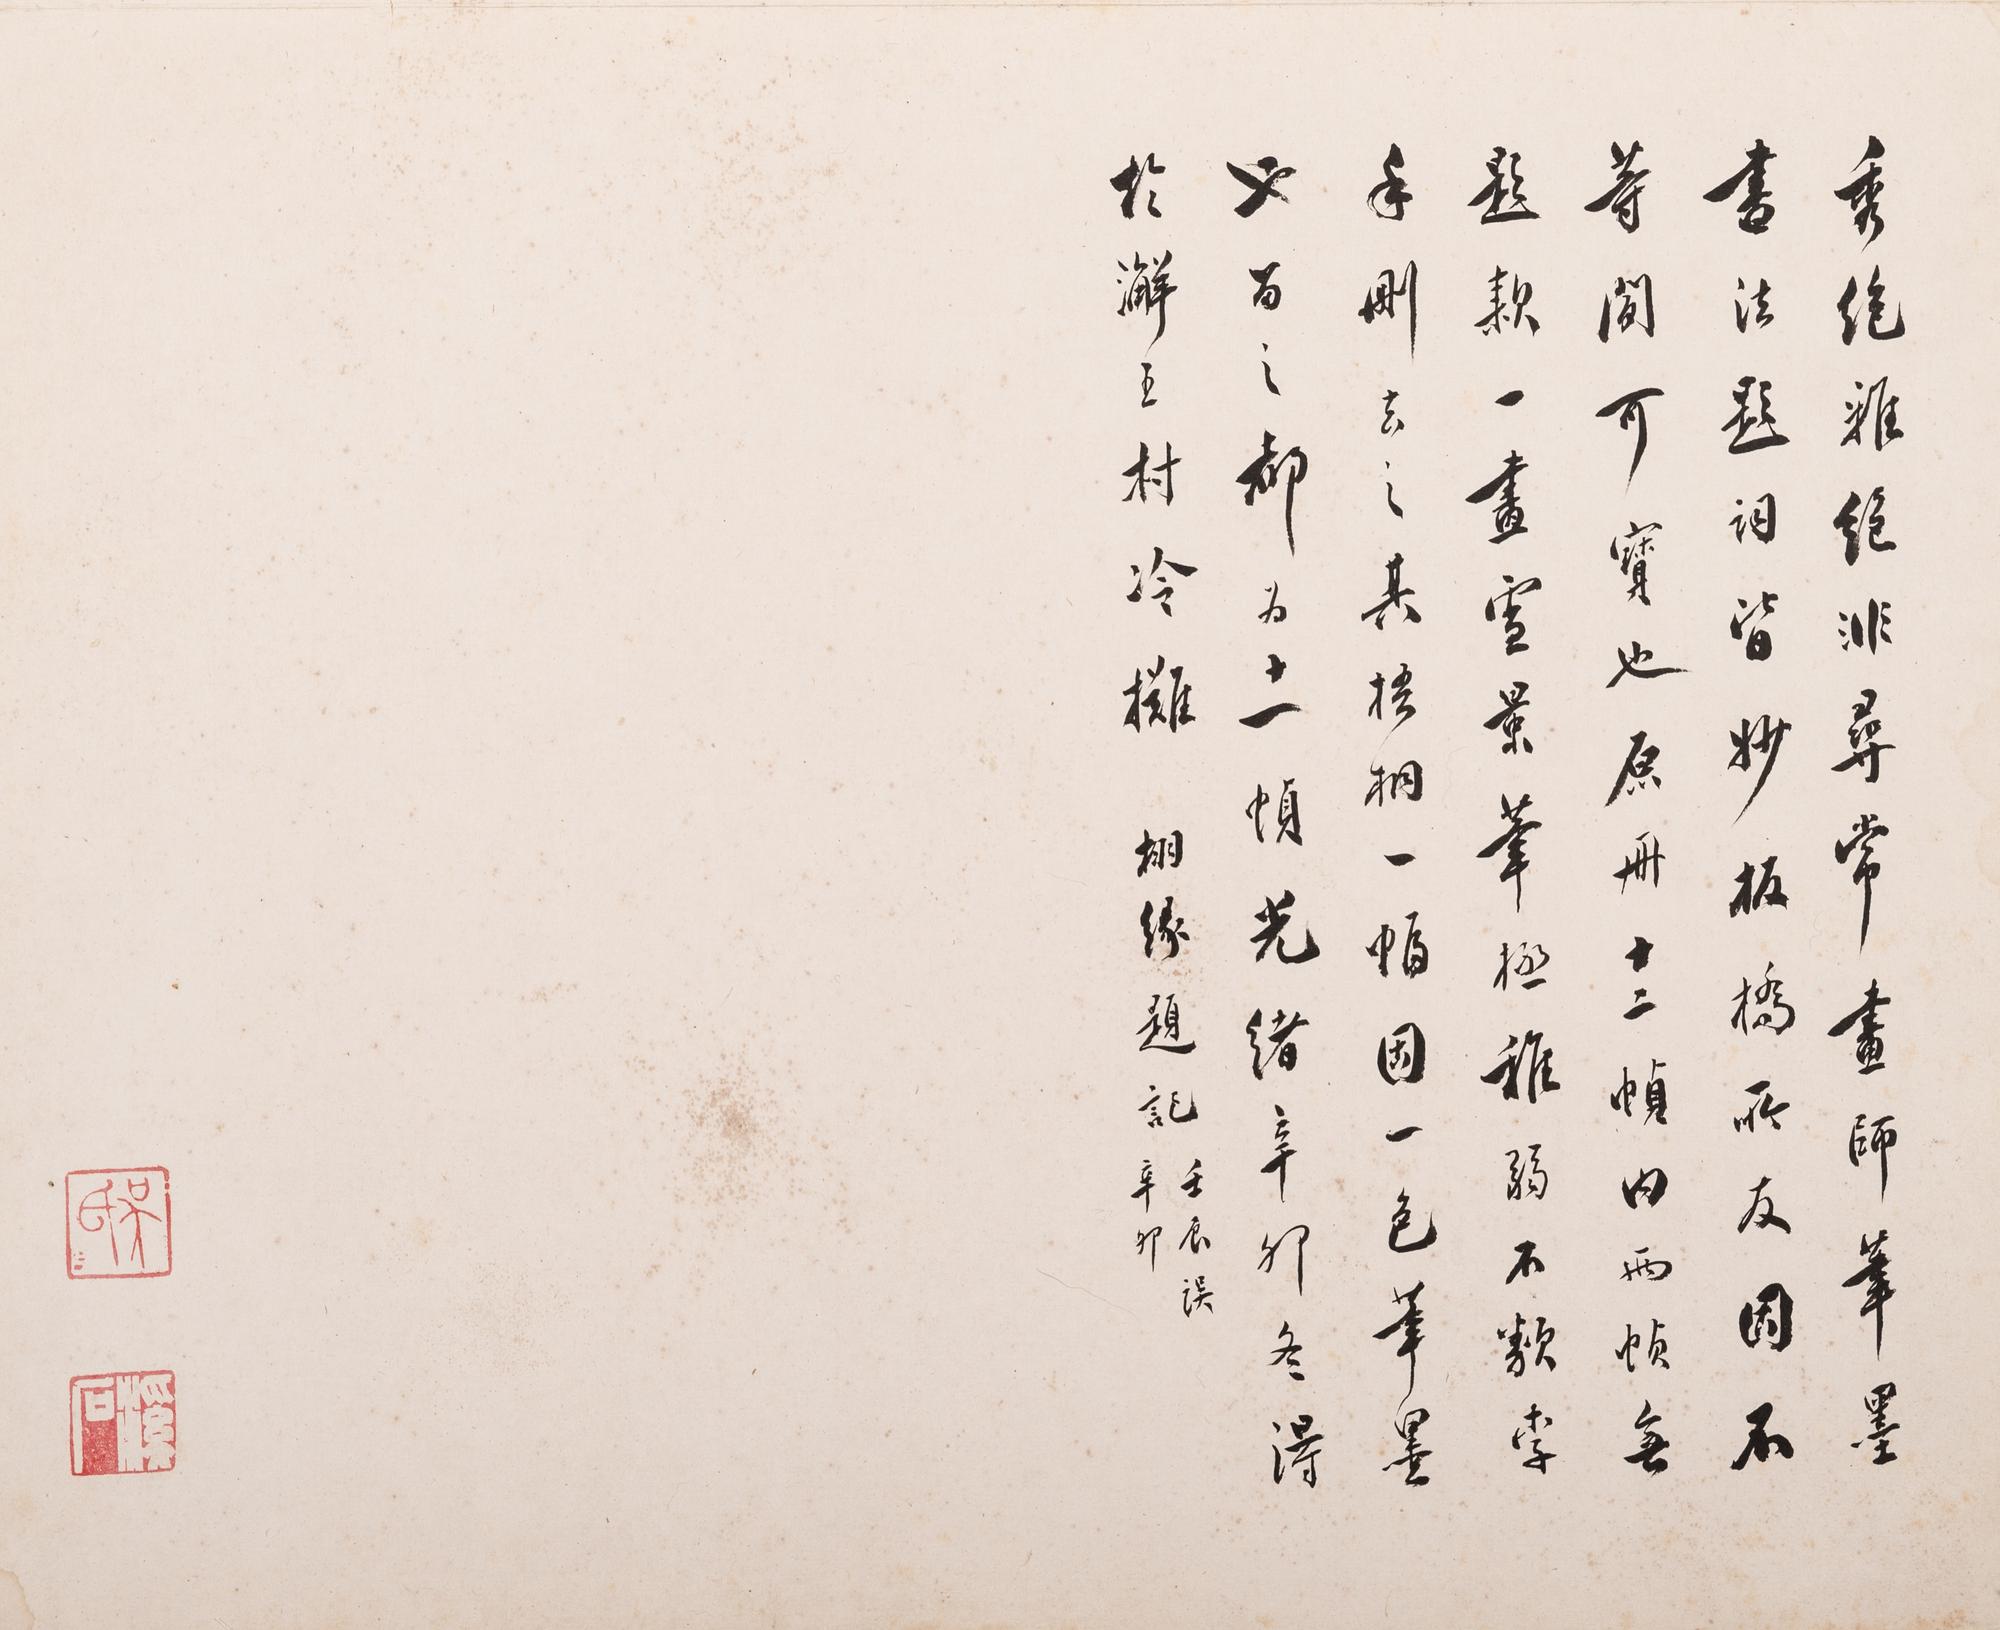 秀絕雅絕非尋常畫師筆墨
書法題詞皆妙板橋所友固不
等閒可寶也原冊十二幀內兩幀無
題款一畫雪景筆極稚弱不類李
手刪去之其梧桐一幅固一色筆墨
必留之都為十一幀光緒辛卯冬得
於澥王村冷攤 栩緣題記
壬辰誤
辛卯